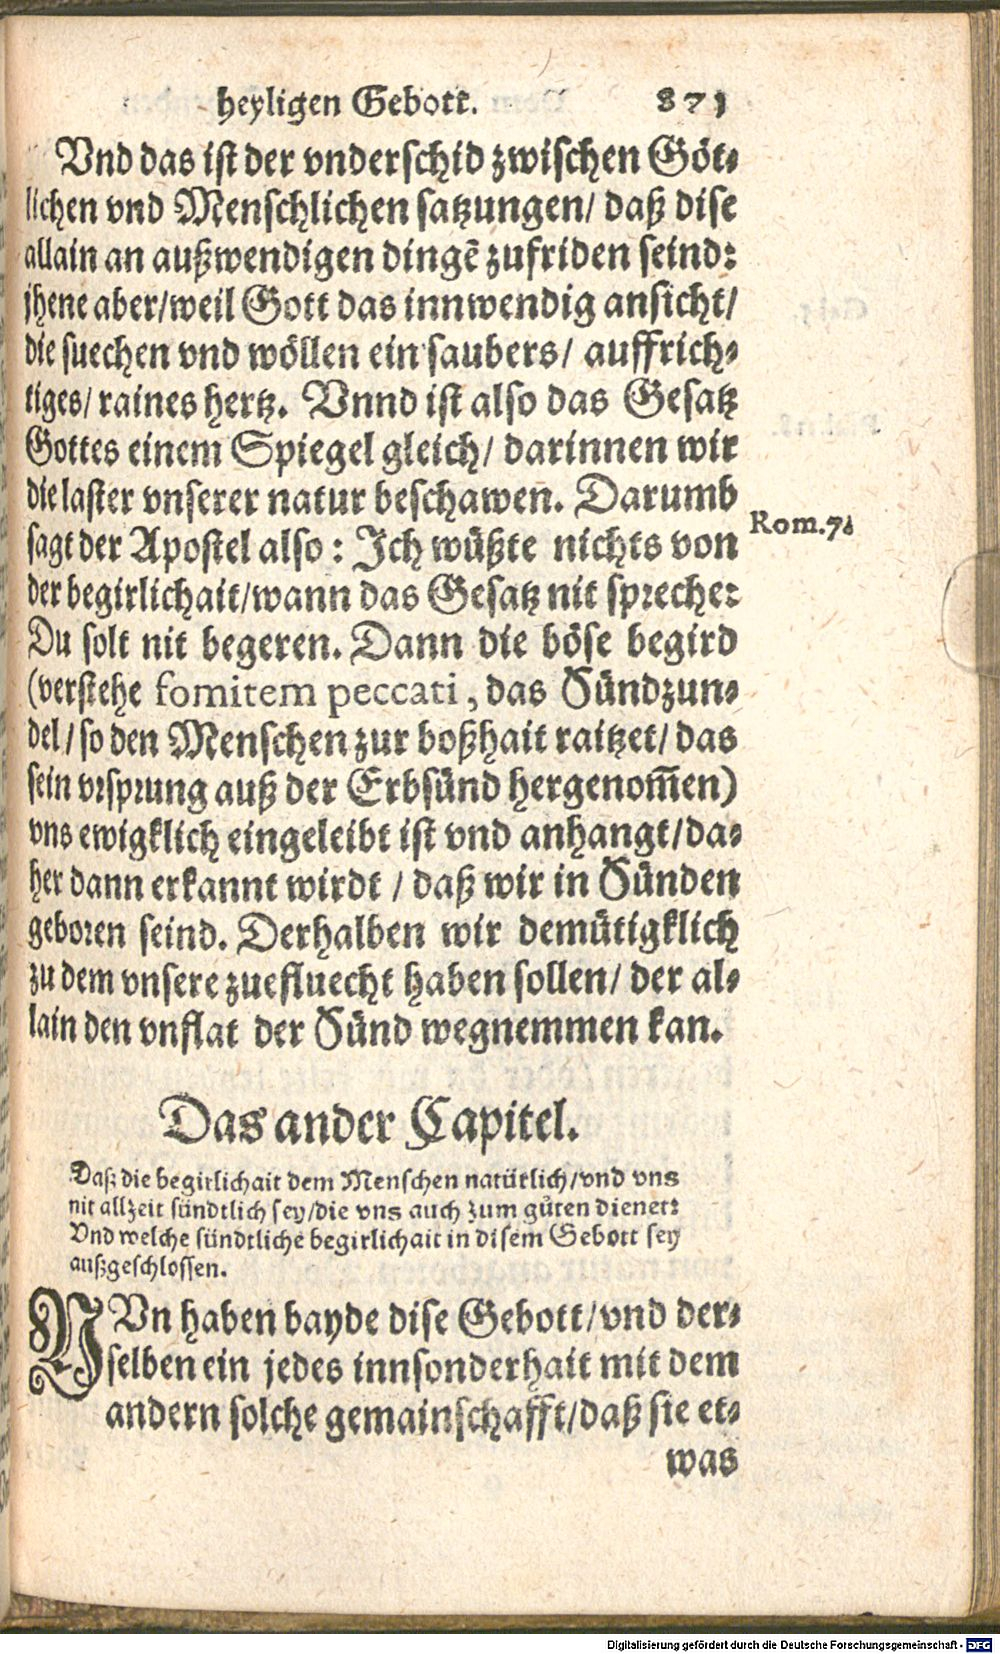 heyligen Gebott. 871
Vnd das ist der vnderschid zwischen Göt-
lichen vnd Menschlichen satzungen/ daß dise
allain an außwendigen dingē zufriden seind:
jhene aber/weil Gott das innwendig ansicht/
die suechen vnd wöllen ein saubers/ auffrich-
tiges/ raines hertz. Vnnd ist also das Gesatz
Gottes einem Spiegel gleich/ darinnen wir
die laster vnserer natur beschawen. Darumb
sagt der Apostel also: Ich wüßte nichts von
Rom.7.
der begirlichait/wann das Gesatz nit spreche:
Du solt nit begeren. Dann die böse begird
(verstehe fomitem peccati, das Sündzun-
del/ so den Menschen zur boßhait raitzet/ das
sein vrsprung auß der Erbsünd hergenom̄en)
vns ewigklich eingeleibt ist vnd anhangt/da-
her dann erkannt wirdt / daß wir in Sünden
geboren seind. Derhalben wir demütigklich
zu dem vnsere zuefluecht haben sollen/ der al-
lain den vnflat der Sünd wegnemmen kan.
Das ander Capitel.
Daß die begirlichait dem Menschen natürlich/vnd vns
nit allzeit sündtlich sey/die vns auch zum gůten dienet:
Vnd welche sündtliche begirlichait in disem Gebott sey
außgeschlossen.
NVn haben bayde dise Gebott/vnd der-
selben ein jedes innsonderhait mit dem
andern solche gemainschafft/daß sie et-
was
Digitalisierung gefördert durch die Deutsche Forschungsgemeinschaft - DFG